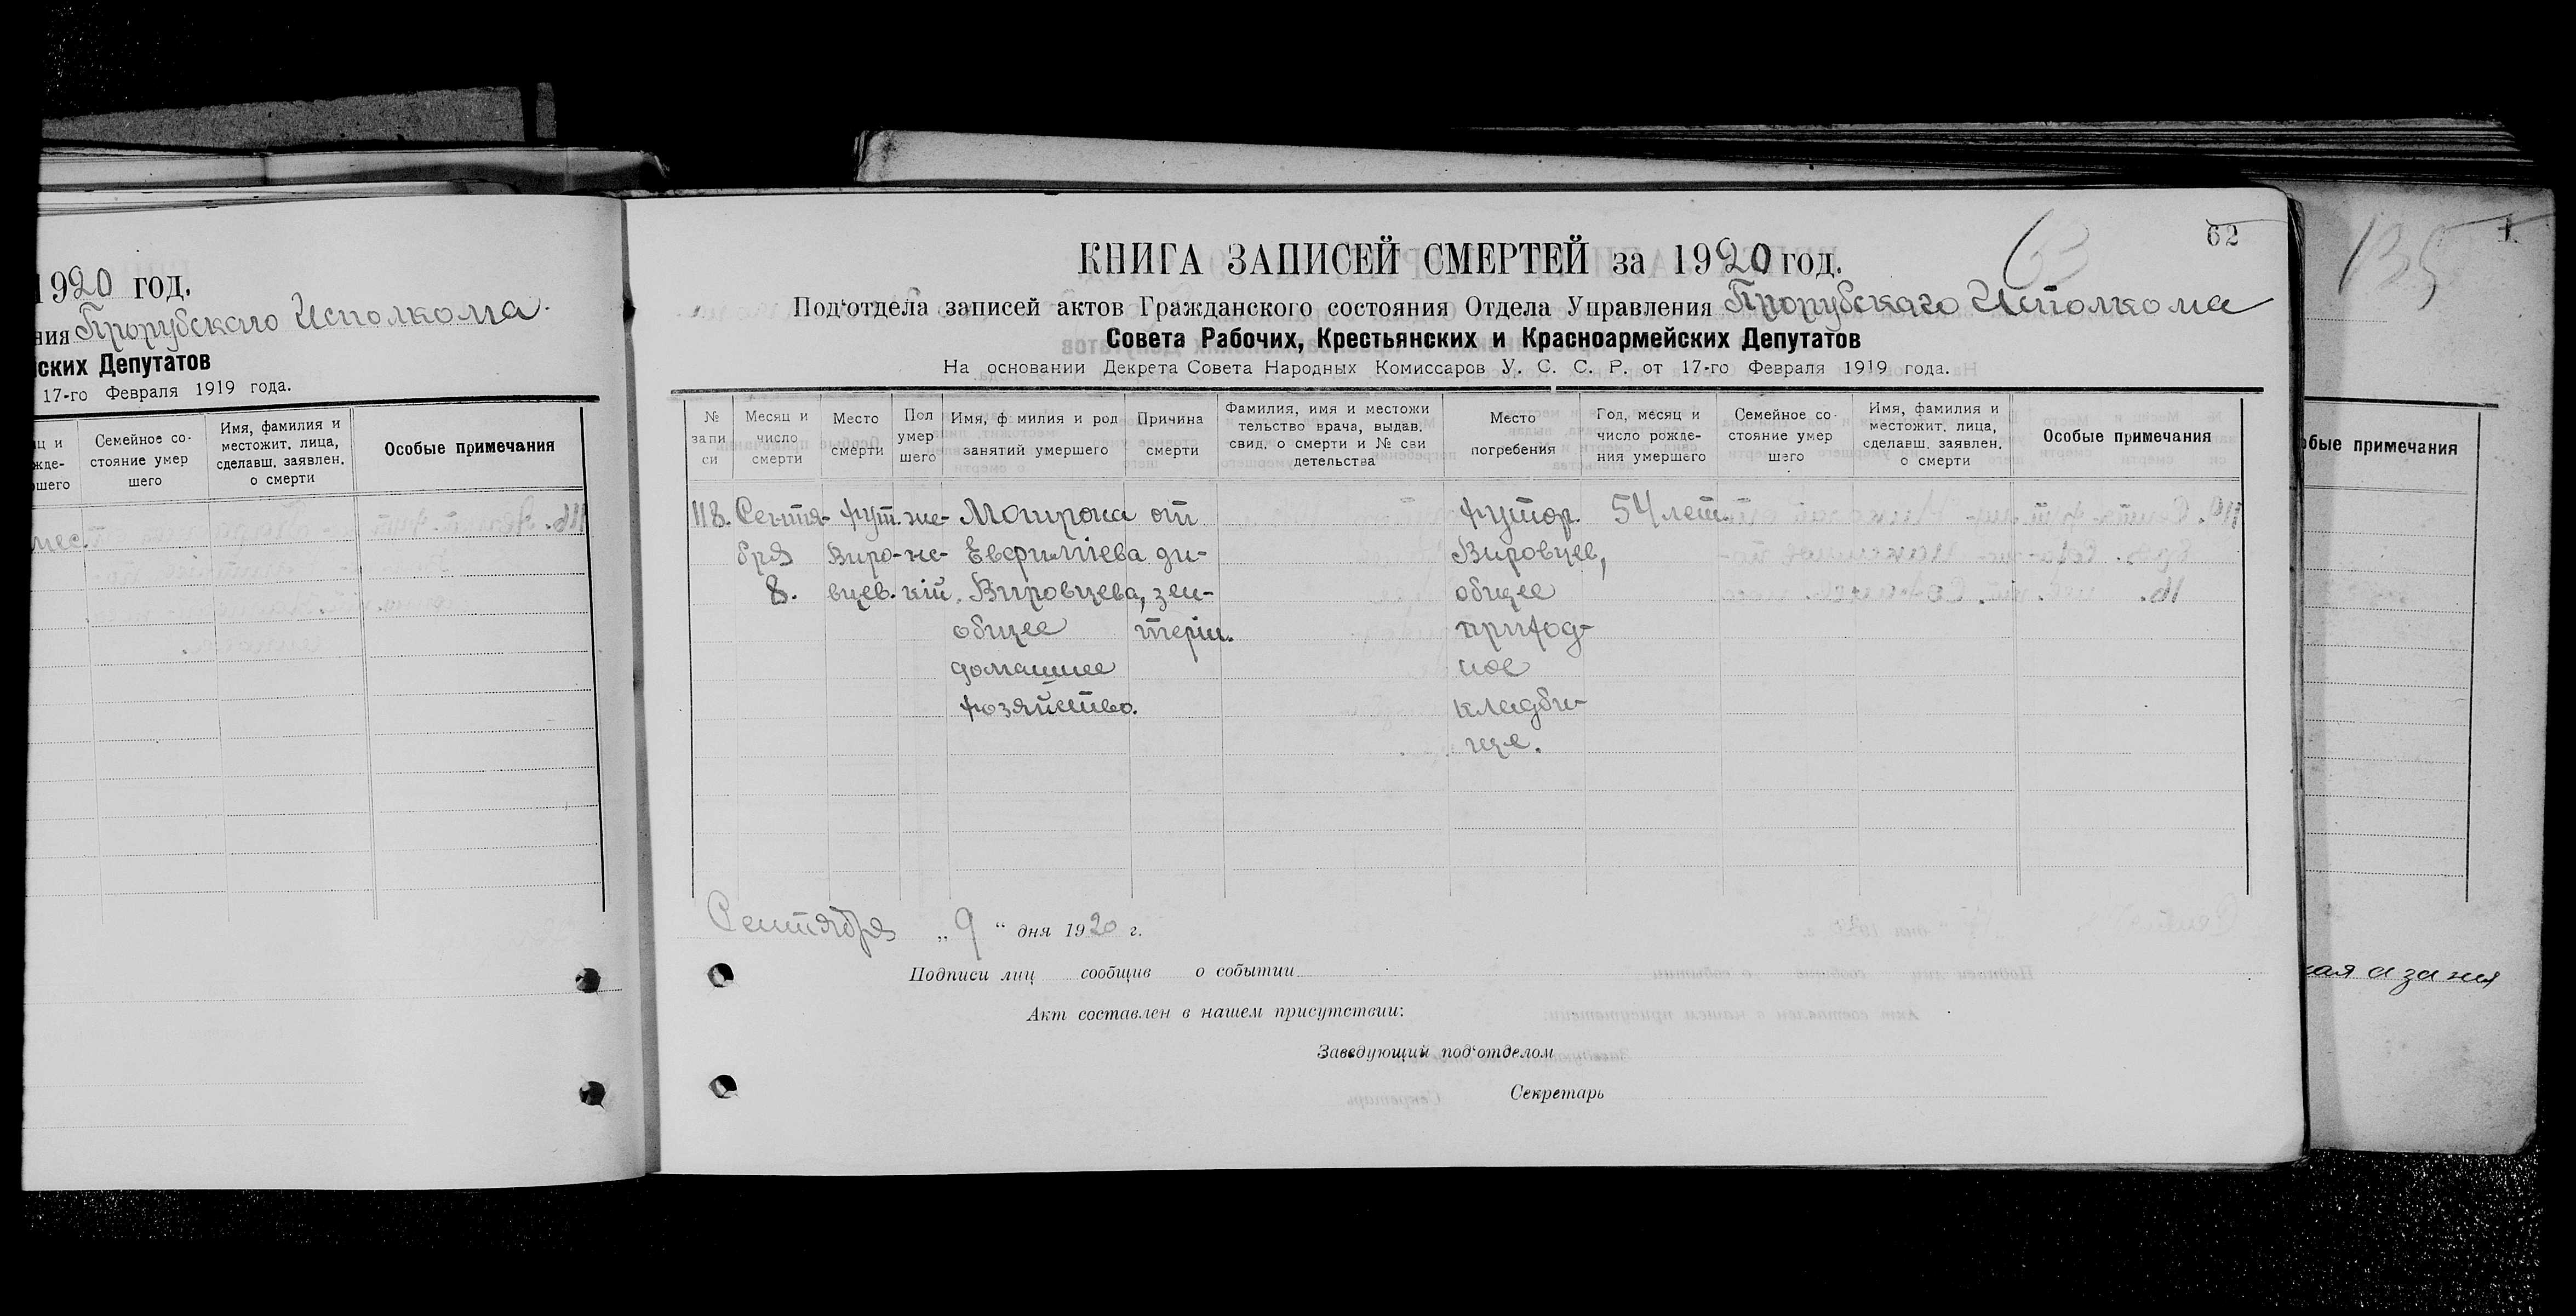 1920 год.
ния Прорубскаго Исполкома.
ских Депутатов
17-го Февраля 1919 года.
ц и
жде-
шего
Семейное со-
стояние умер
шего
Имя, фамилия и
местожит. лица,
сделавш. заявлен.
о смерти
Особые примечания
мес.
62
63
КНИГА ЗАПИСЕЙ СМЕРТЕЙ за 1920 год.
Под'отдела записей актов Гражданского состояния Отдела Управления Прорубскаго Исполкома
Совета Рабочих, Крестьянских и Красноармейских Депутатов
На основании Декрета Совета Народных Комиссаров У. С. С. Р. от 17-го Февраля 1919 года.
№
запи
си
Месяц и
число
смерти
Место
смерти
Пол
умер
шего
Имя, ф милия и род
занятий умершего
Причина
смерти
Фамилия, имя и местожи
тельство врача, выдав.
свид. о смерти и № сви
детельства
Место
погребения
Год, месяц и
число рожде-
ния умершего
Семейное со-
стояние умер
шего
Имя, фамилия и
местожит. лица,
сделавш. заявлен.
о смерти
Особые примечания
118. Сентя- Хут. же- Мотрона от Хутор. 54 лет.
бря Виро- нс- Евфимiева ди- Вировцев,
8. вцев. кiй. Вировцева, зен- общее
общее терiи. приход-
домашнее ное
хозяйство. кладби-
ще.
Сентября „ 9 “ дня 1920 г.
Подписи лиц сообщив о событии
Акт составлен в нашем присутствии:
Заведующий под'отделом
Секретарь
135
1.
обые примечания